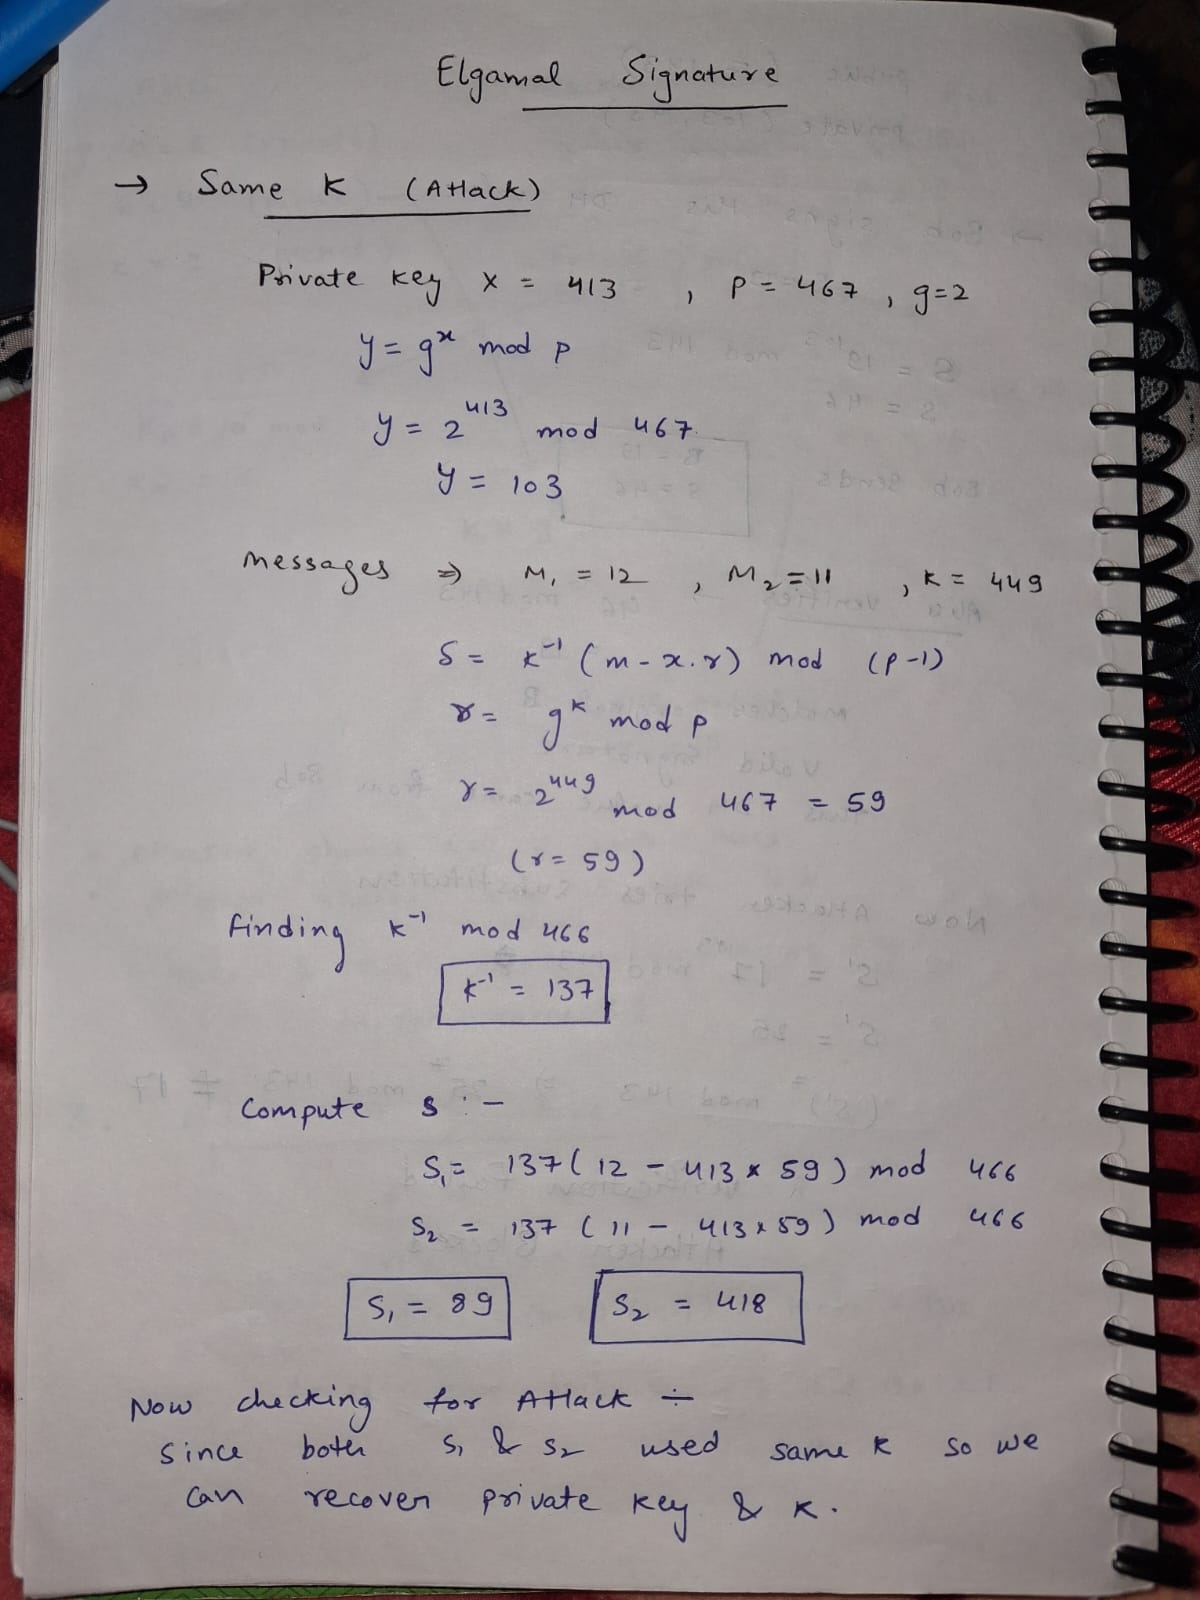 Elgamal Signature
→ Same K (Attack)
Private key x = 413 , P = 467 , g=2
y = g^x mod p
y = 2^413 mod 467
y = 103
Messages ⇒ M₁ = 12 , M₂ = 11 , K = 449
S = K⁻¹ (m - x.r) mod (p-1)
r = g^K mod p
r = 2^449 mod 467 = 59
(r = 59)
finding K⁻¹ mod 466
K⁻¹ = 137
Compute s :-
S₁ = 137 ( 12 - 413 x 59 ) mod 466
S₂ = 137 ( 11 - 413 x 59 ) mod 466
S₁ = 89 S₂ = 418
Now checking for Attack ÷
Since both S₁ & S₂ used same K so we
can recover private key & K.